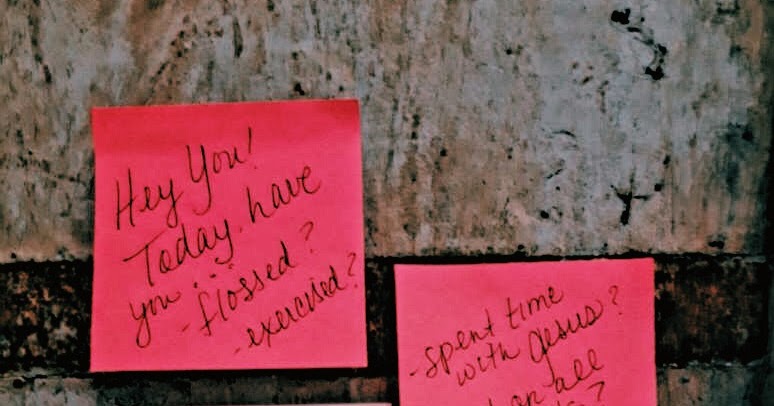 Hey You!
Today, have
you...
- flossed?
- exercised?
- spent time
with Jesus?
on all